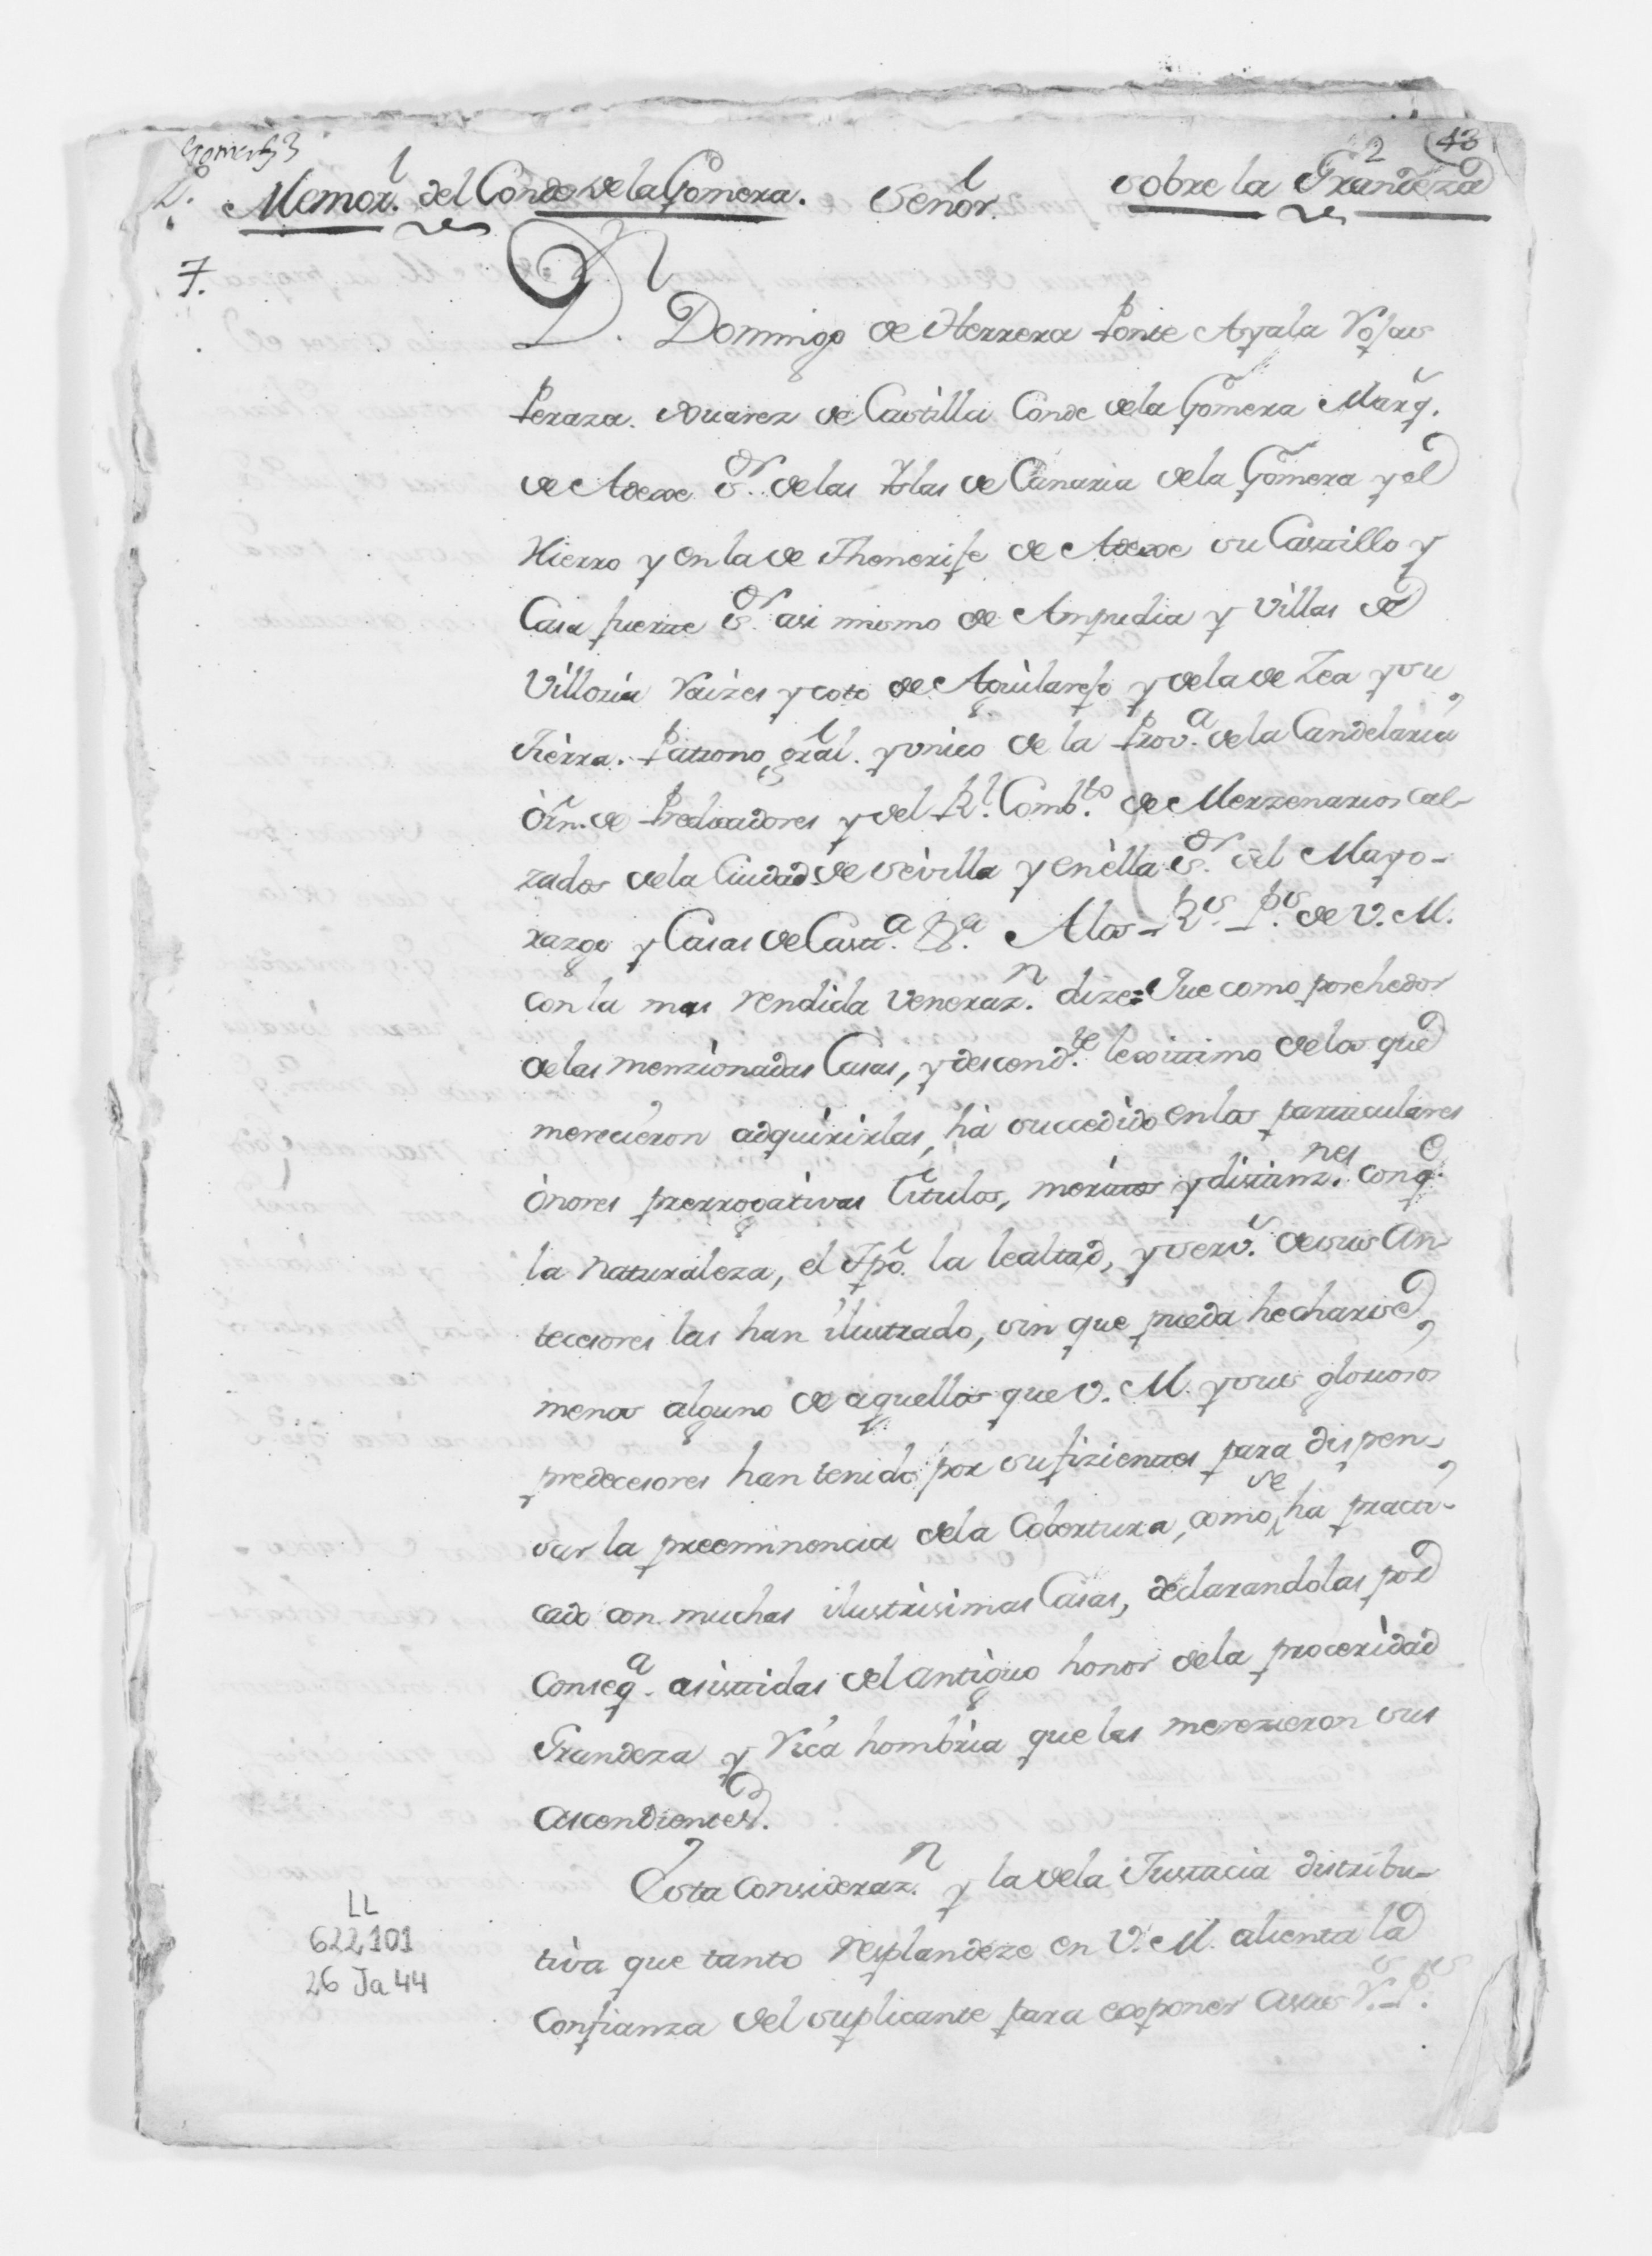 2 43
Memor.l del Conde de la Gomera. Señor.l sobre la Grandeza
7.
D.n Domingo de Herrera Ponte Ayala Roxas
Peraza. Suarez de Castilla Conde dela Gomera Marq.
de Adexe S.or delas Yslas de Canaria dela Gomera y el
Hierro y en la de Thenerife de Adexe su Castillo y
Casa fuerte S.or asi mismo de Ampudia y Villas de
Villoria Raizes y coto de Aguilarejo y dela de Zea y su
Tierra. Patrono gral. y vnico de la Prov.a dela Candelaria
Orn. de Predicadores y del R.l Comb.to de Merzenarios Cal-
zados dela Ciudad de Sèvilla y en èlla S.or del Mayo-
razgo y Casas de Cast.a &.a A los R.s P.s de V. M.
con la mas rendida veneraz.n dize: Que como posehedor
de las menzionadas Casas, y descend.te lexitimo delos que
merecieron adquirirlas, hà succedido en los particulares
ònores prerrogativas Titulos, meritos y distinz.nes con q.e
la naturaleza, el Tpo. la lealtad, y serv. de sus An-
tecesores las han ilustrado, sin que pueda hecharse
menos alguno de aquellos que V. M. y sus gloriosos
predecesores han tenido por sufizientes para dispen-
sar la preeminencia dela Cobertura, como se ha practi-
cado con muchas ilustrisimas Casas, declarandolas por
conseq.a asistidas del antiguo honor dela proceridad
Grandeza y Rica hombria que las merezieron sus
Ascendientes.
Esta Consideraz.n y la dela Justicia distribu-
tiva que tanto resplandeze en V. M. alienta la
Confianza del suplicante para exponer a sus R.s P.s
LL
622,101
26 Ja 44